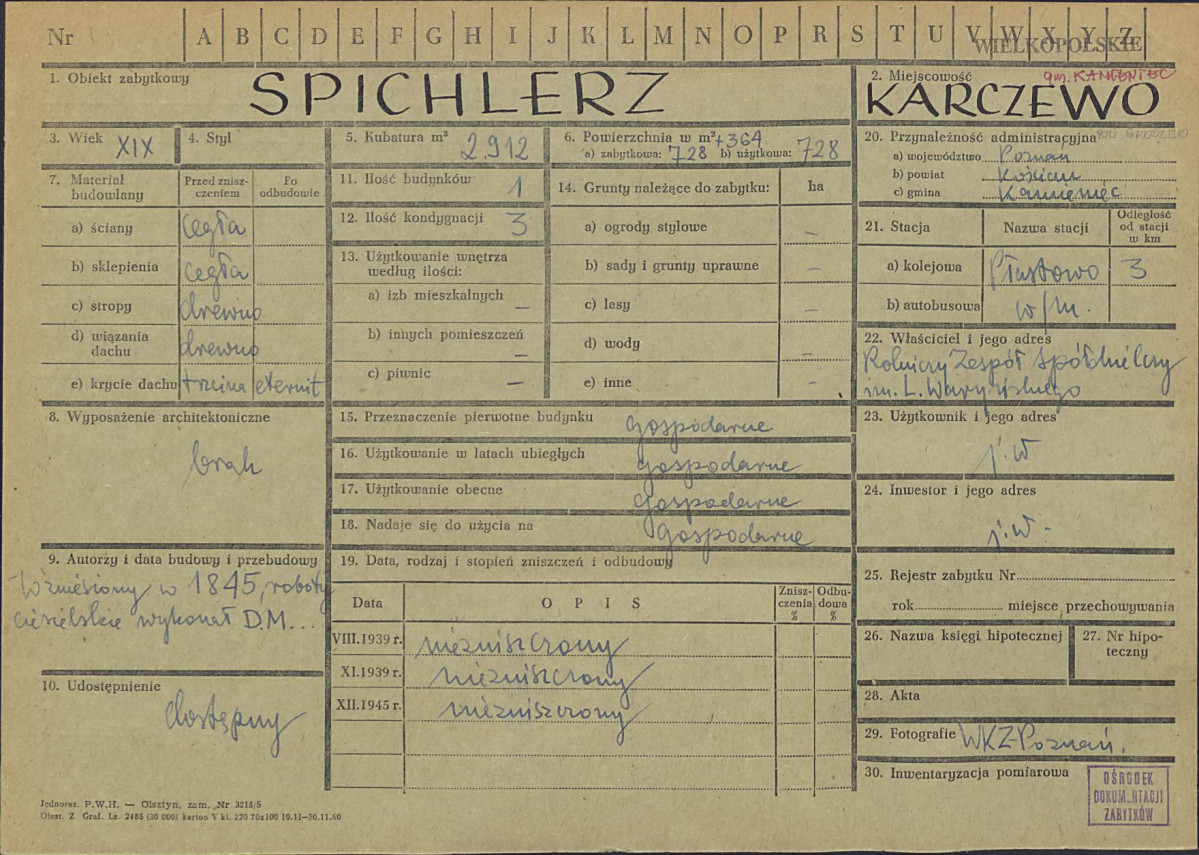 Nr A B C D E F G H I J K L M N O P R S T U V W X Y Z
WIELKOPOLSKIE
1. Obiekt zabytkowy
SPICHLERZ
2. Miejscowość
gm. KAMIENIEC
KARCZEWO
3. Wiek XIX
4. Styl
5. Kubatura m³ 2.912
6. Powierzchnia w m² +364
a) zabytkowa: 728 b) użytkowa: 728
7. Materiał budowlany
Przed znisz-
czeniem
Po
odbudowie
a) ściany cegła
b) sklepienia cegła
c) stropy drewno
d) wiązania
dachu drewno
e) krycie dachu trzcina eternit
8. Wyposażenie architektoniczne
brak
9. Autorzy i data budowy i przebudowy
Wzniesiony w 1845, roboty
ciesielskie wykonał D.M...
10. Udostępnienie
dostępny
11. Ilość budynków 1
12. Ilość kondygnacji 3
13. Użytkowanie wnętrza
według ilości:
a) izb mieszkalnych –
b) innych pomieszczeń –
c) piwnic –
14. Grunty należące do zabytku: ha
a) ogrody stylowe –
b) sady i grunty uprawne –
c) lasy –
d) wody –
e) inne –
15. Przeznaczenie pierwotne budynku gospodarne
16. Użytkowanie w latach ubiegłych gospodarne
17. Użytkowanie obecne gospodarne
18. Nadaje się do użycia na gospodarne
19. Data, rodzaj i stopień zniszczeń i odbudowy
Data
O P I S
Znisz-
czenia
%
Odbu-
dowa
%
VIII.1939 r. niezniszczony
XI.1939 r. niezniszczony
XII.1945 r. niezniszczony
20. Przynależność administracyjna
a) województwo Poznań
b) powiat Kościan
c) gmina Kamieniec
21. Stacja
Nazwa stacji
Odległość
od stacji
w km
a) kolejowa Ptastowo 3
b) autobusowa w/m.
22. Właściciel i jego adres
Rolniczy Zespół Spółdzielczy
im. L. Waryńskiego
23. Użytkownik i jego adres
j.w
24. Inwestor i jego adres
j.w.
25. Rejestr zabytku Nr
rok miejsce przechowywania
26. Nazwa księgi hipotecznej
27. Nr hipo-
teczny
28. Akta
29. Fotografie WKZ-Poznań.
30. Inwentaryzacja pomiarowa
OŚRODEK
DOKUMENTACJI
ZABYTKÓW
Jednoraz. P.W.H. — Olsztyn, zam. Nr 3215/S
Olszt. Z Graf. Lz. 2485 (30 000) karton V kl. 220 70x100 10.11-30.11.60